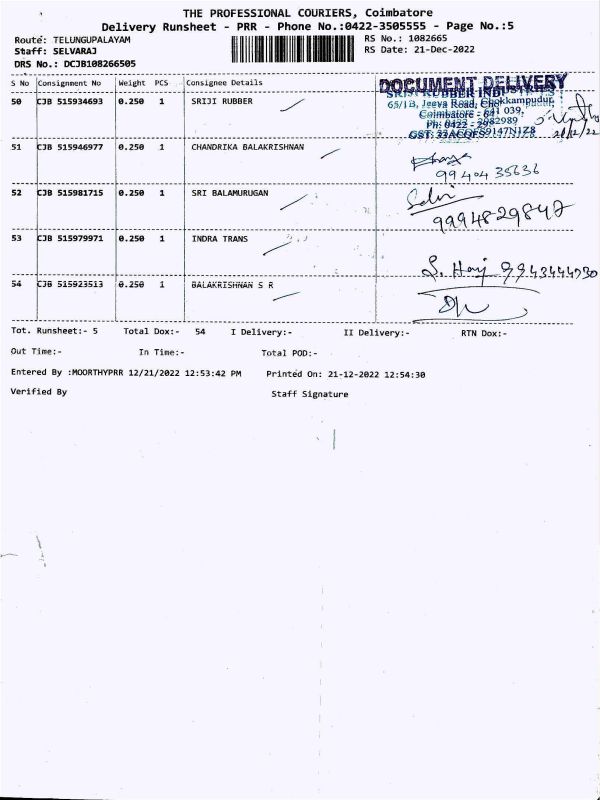 THE PROFESSIONAL COURIERS, Coimbatore
Delivery Runsheet - PRR - Phone No.:0422-3505555 - Page No.:5
Route: TELUNGUPALAYAM RS No.: 1082665
Staff: SELVARAJ RS Date: 21-Dec-2022
DRS No.: DCJB108266505
S No Consignment No Weight PCS Consignee Details
DOCUMENT DELIVERY
50 CJB 515934693 0.250 1 SRIJI RUBBER
65/1B, Jeeva Road, Chokkampudur,
Coimbatore - 641 039,
Ph: 0422 -
21/12/22
51 CJB 515946977 0.250 1 CHANDRIKA BALAKRISHNAN
99404 35636
52 CJB 515981715 0.250 1 SRI BALAMURUGAN
Selvi
9994829847
53 CJB 515979971 0.250 1 INDRA TRANS
S. Hari 9943444730
54 CJB 515923513 0.250 1 BALAKRISHNAN S R
Tot. Runsheet:- 5 Total Dox:- 54 I Delivery:- II Delivery:- RTN Dox:-
Out Time:- In Time:- Total POD:-
Entered By :MOORTHYPRR 12/21/2022 12:53:42 PM Printed On: 21-12-2022 12:54:30
Verified By Staff Signature